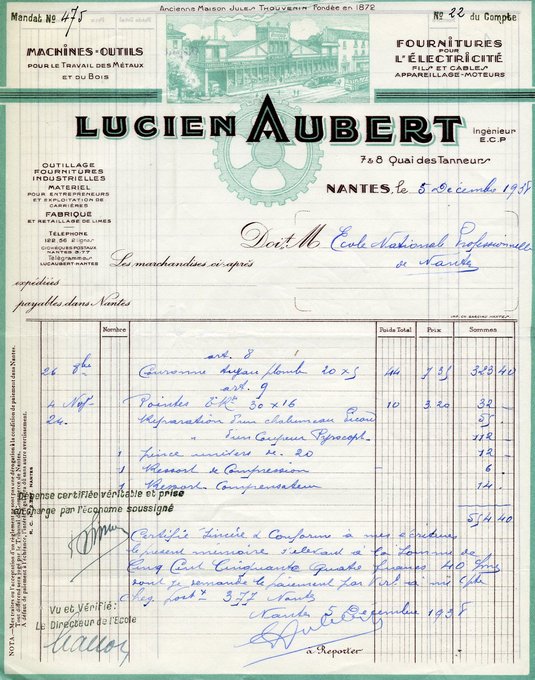 Ancienne Maison Jules Thouvenin Fondée en 1872
Mandat No 475
No 22 du Compte
MACHINES-OUTILS
POUR LE TRAVAIL DES MÉTAUX
ET DU BOIS
FOURNITURES
POUR
L'ÉLECTRICITÉ
FILS ET CABLES
APPAREILLAGE-MOTEURS
LUCIEN AUBERT
Ingénieur
E.C.P
7 & 8 Quai des Tanneurs
NANTES, le 5 Décembre 1938
OUTILLAGE
FOURNITURES
INDUSTRIELLES
MATERIEL
POUR ENTREPRENEURS
ET EXPLOITATION DE
CARRIÈRES
FABRIQUE
ET RETAILLAGE DE LIMES
TÉLÉPHONE
122.56 2 lignes
CHÈQUES POSTAUX
NANTES 3.77
Télégrammes
LUCAUBERT-NANTES
Doit M Ecole Nationale Professionnelle
de Nantes
Les marchandises ci-après
expédiées
payables dans Nantes
IMP. CH. NANTES.
Nombre
Poids Total
Prix
Sommes
art. 8
26 Couronne tuyau plomb 20 x 5 44 7 35 323 40
art. 9
4 Nov Pointes 30 x 16 10 3.20 32 -
24. Réparation d'un chalumeau 55.
" d'un Coupeur Pyrocopt 112 -
1 pince 20 12 -
1 Ressort de Compression 6.
1 Ressort Compensateur 14.
554 40
Dépense certifiée véritable et prise
en charge par l'économe soussigné
Certifié Sincère & Conforme à mes écritures
le présent mémoire s'élevant à la somme de
Cinq Cent Cinquante quatre francs 40
dont je demande le paiement par Vir. à m/ Cpte
Cheq. post. 377 Nantes
Nantes 5 Décembre 1938
Vu et Vérifié:
Le Directeur de l'Ecole
à Reporter
R. C. NANTES
NOTA. - Mes traites ou l'acceptation d'un règlement ne sont pas une dérogation à la condition de paiement dans Nantes.
Tout différend sera jugé par le Tribunal de Commerce de Nantes.